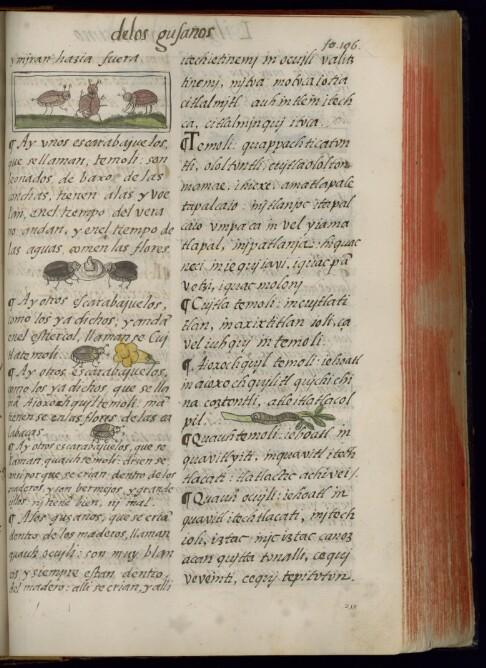 de los gusanos
fo. 196.
y miran hazia fuera.
¶ Ay vnos escarabajuelos,
que se llaman, temoli: son
leonados, de baxo de las
conchas, tienen alas y voe
lan, en el tiempo del vera
no andan, y en el tiempo de
las aguas, comen las flores.
¶ Ay otros escarabajuelos,
como los ya dichos, y andã
en el estiercol, llamanse Cuj
tlatemoli.
¶ Ay otros, escarabajuelos,
como los ya dichos, que se lla
mã Aioxochquiltemoli: mã
tienense en las flores de las ca
labaças.
¶ Ay otros escarabajuelos, que se
llaman, quauhtemoli: dizen se
ansi porque se crian dentro de los
maderos, y son bermejos, y grande
cillos. nj hazẽ bien, nj mal.
¶ A los gusanos, que se criã
dentro de los maderos, llaman
quauh ocujlj: son muy blan
cos y siempre estan dentro
del madero: alli se crian, y alli
itech ietinemj in ocujli
tinemj,
citlalmjtl. auh in tlein itech
ca, citlalmjnquj itoca.
¶ Temoli: quappachtic
tli, ololtontli,
momae, ihicxe. amatlapale
tapalcaio: njtlanpoc itapal
caio vmpa ca in vel yiama
tlapal, inj patlanja: iquac
neci in ie qujiauj, iquac pã
vetzi, iquac moloni
¶ Cujtla temoli: in cujtlati
tlan, in axixtitlan
vel iuhquj in temoli.
¶ Aioxochquijl temoli: iehoatl
in aioxochquilitl qujchichi
na coztontli, achi tlatlacol
pil.
¶ Quauhtemoli: iehoatl in
quavitl yitic, in quavitl itech
tlacati: tlatlactic achi vei /.
¶ Quauh ocujli: iehoatl in
quavitl itech tlacati, in itech
ioli, iztac iztac canoz
acan qujtta tonalli, cequj
veveintj, cequj tepitoton.